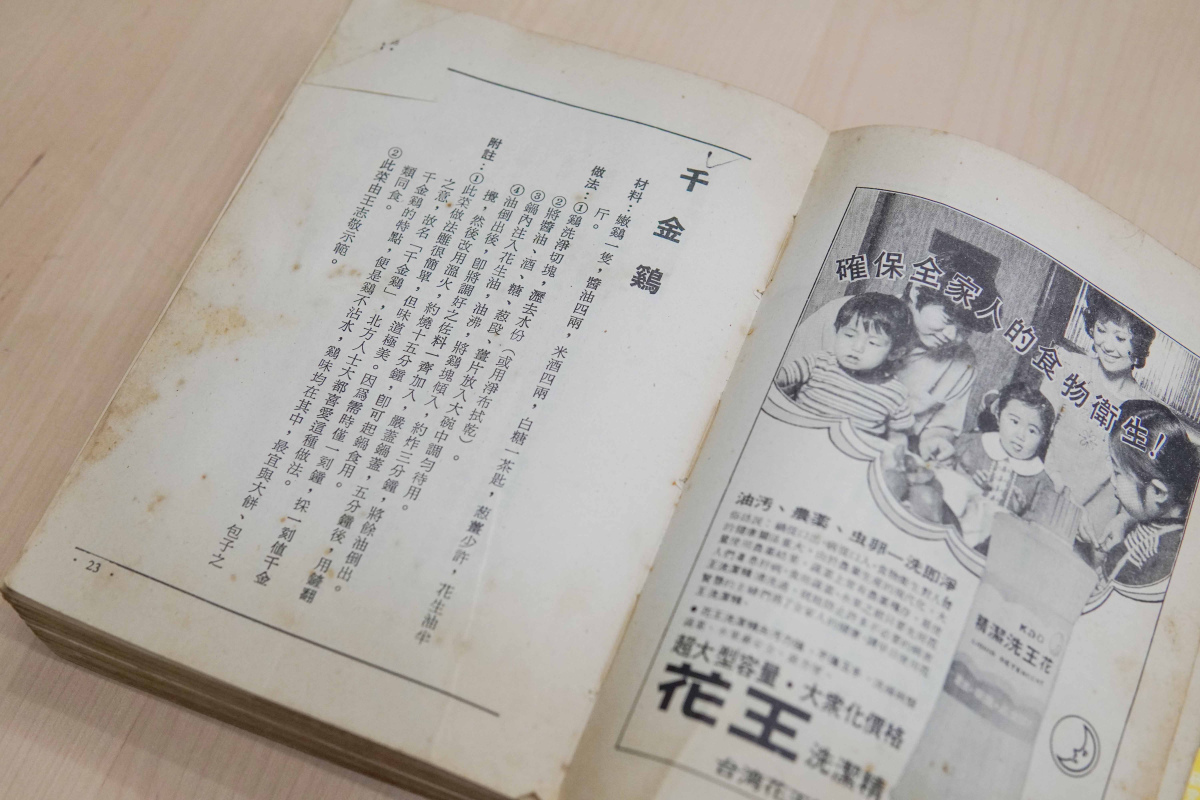 千金鷄
材料：嫩鷄一隻，醬油四兩，米酒四兩，白糖一茶匙，葱薑少許，花生油半
斤。
做法：①鷄洗淨切塊，瀝去水份（或用淨布拭乾）。
②將醬油、酒、糖、葱段、薑片放入大碗中調勻待用。
③鍋內注入花生油，油沸，將鷄塊傾入，約炸三分鐘，將餘油倒出。
④油倒出後，即將調好之佐料一齊加入，嚴蓋鍋蓋，五分鐘後，用鏟翻
攪，然後改用温火，約燒十五分鐘，即可起鍋食用。
附註：①此菜做法雖很簡單，但味道極美。因爲需時僅一刻鐘，採一刻值千金
之意，故名「千金鷄」，北方人士大都喜愛這種做法。
千金鷄的特點，便是鷄不沾水，鷄味均在其中，最宜與大餅、包子之
類同食。
②此菜由王志敬示範。
· 23 ·
確保全家人的食物衛生！
油汚、農藥、虫卵一洗即淨
Kao
花王洗潔精
超大型容量·大衆化價格
花王洗潔精
台湾花王